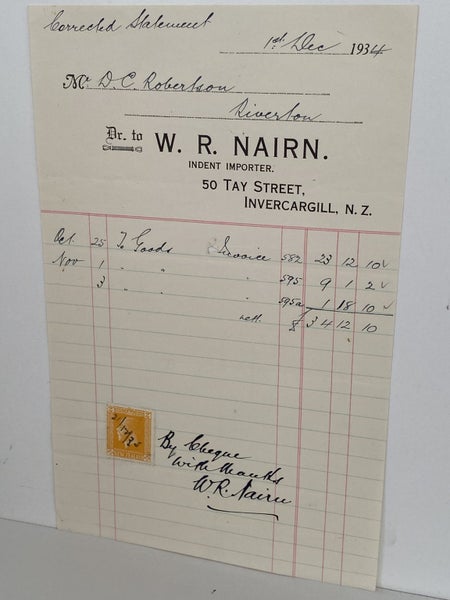 Corrected Statement
1st Dec 1934
Mr. D. C. Robertson
Riverton
Dr. to W. R. NAIRN.
INDENT IMPORTER.
50 TAY STREET,
INVERCARGILL, N. Z.
Oct. 25 To Goods Invoice 582 23 12 10 ✓
Nov 1 " " " 595 9 1 2 ✓
3 " " " 595a 1 18 10 ✓
nett. £ 34 12 10
By Cheque
with thanks
W. R. Nairn